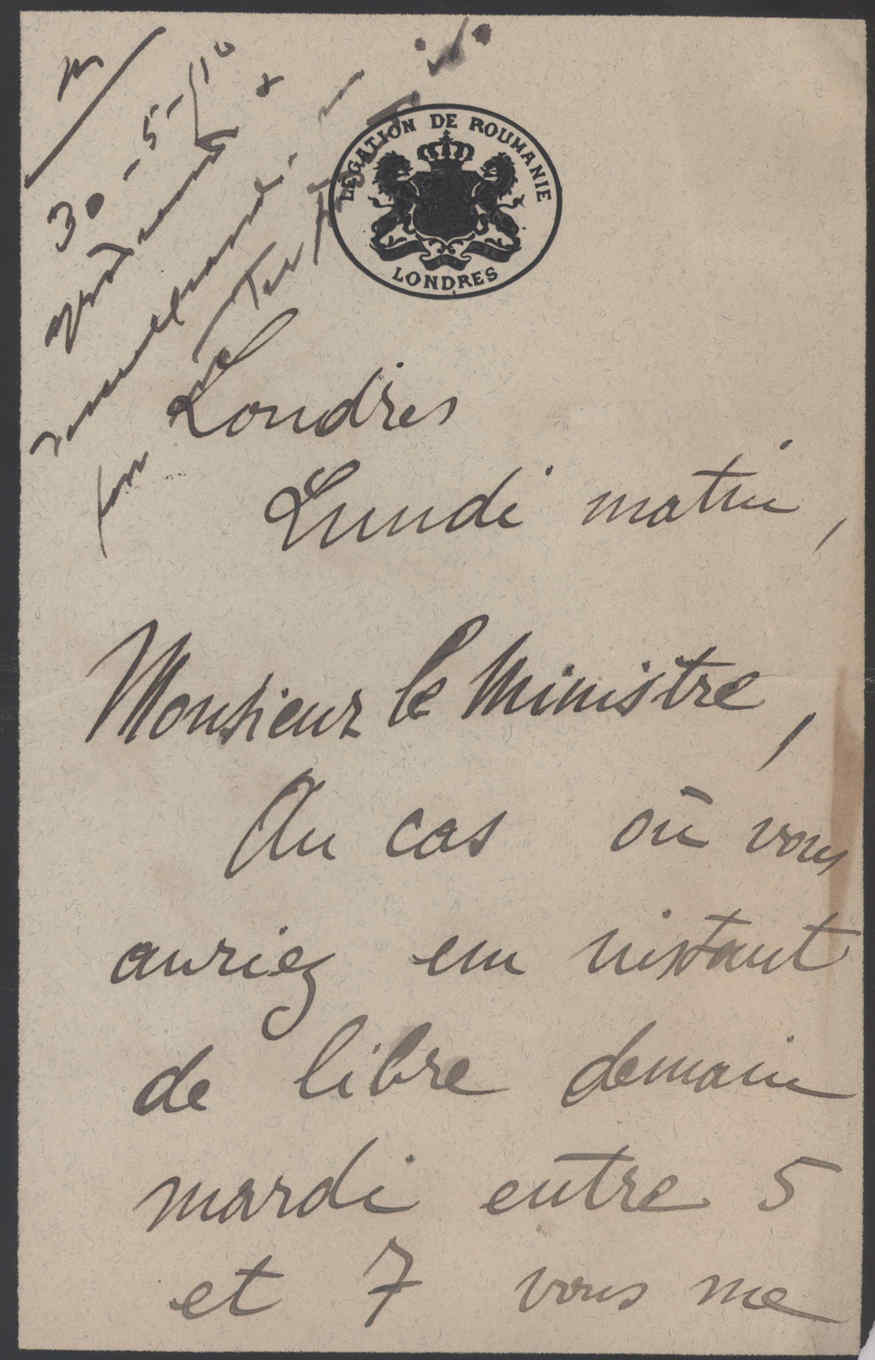 30-5-10
LÉGATION DE ROUMANIE
LONDRES
Londres
Lundi matin,
Monsieur le Ministre,
Au cas où vous
auriez un instant
de libre demain
mardi entre 5
et 7 vous me